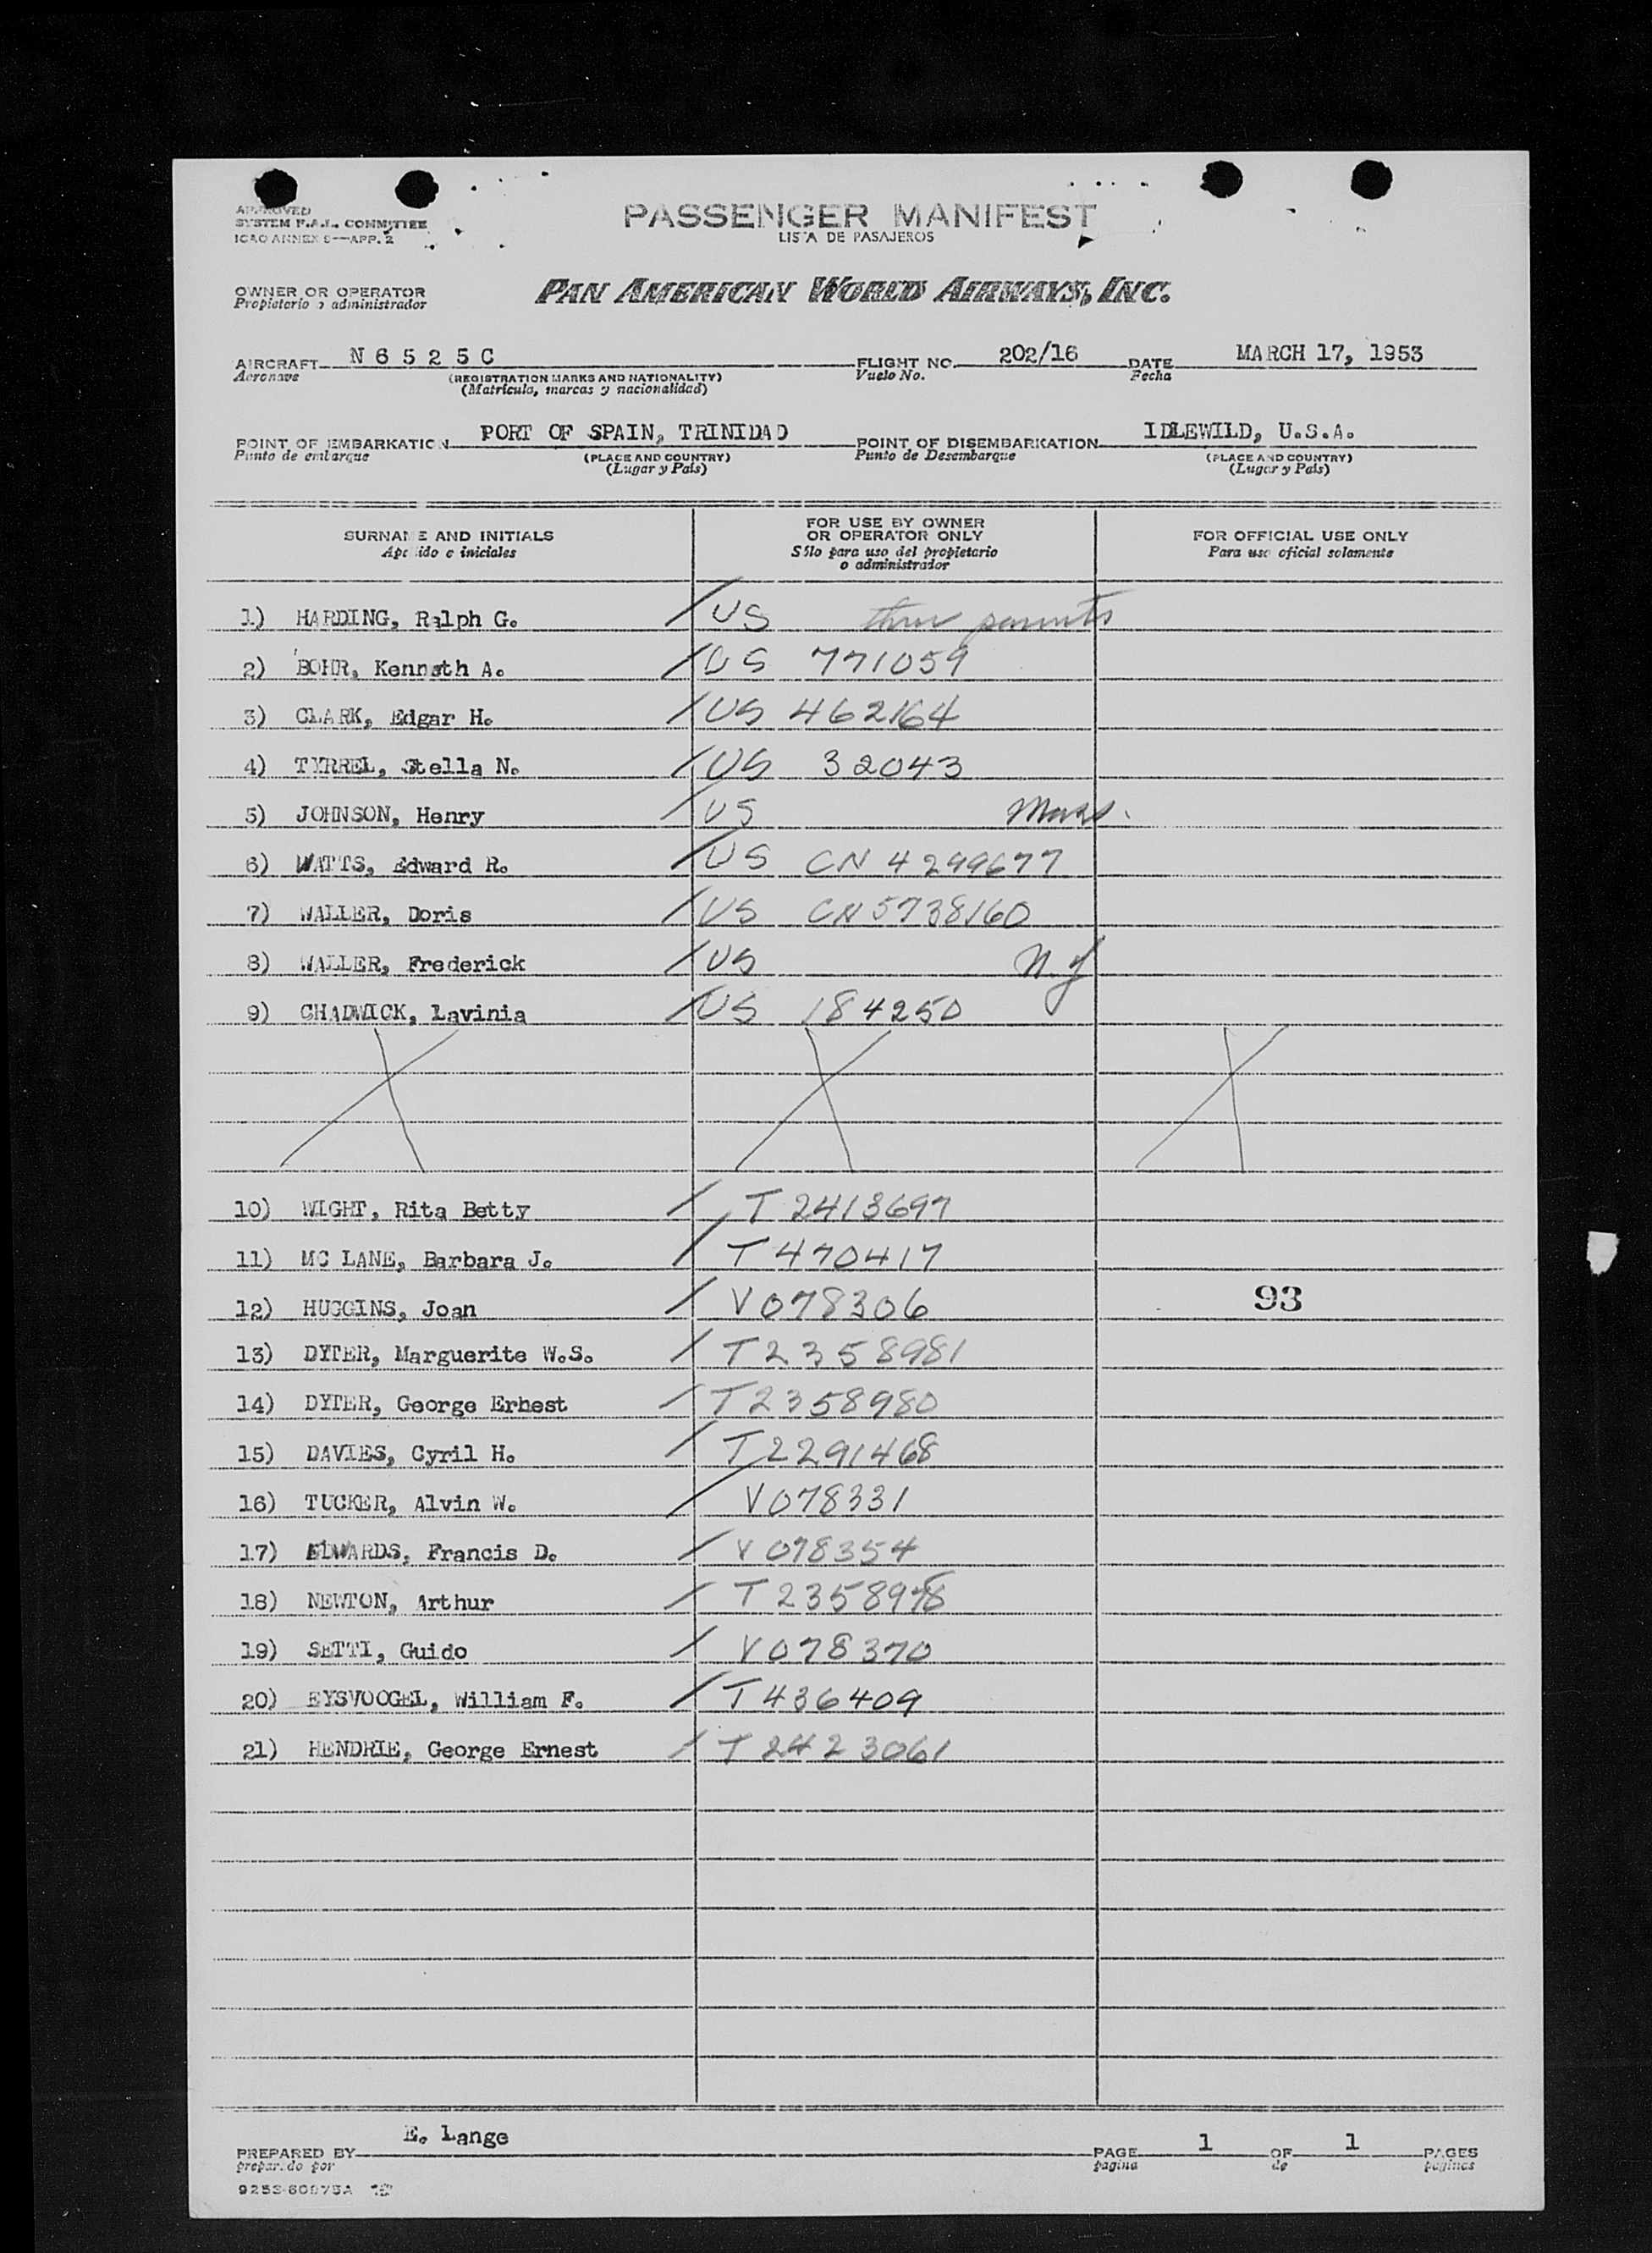 APPROVED
SYSTEM F.A.L. COMMITTEE
ICAO ANNEX 9—APP. 2
PASSENGER MANIFEST
LISTA DE PASAJEROS
OWNER OR OPERATOR
Propietario o administrador
PAN AMERICAN WORLD AIRWAYS, INC.
AIRCRAFT N 6 5 2 5 C FLIGHT NO. 202/16 DATE MARCH 17, 1953
Aeronave (REGISTRATION MARKS AND NATIONALITY) Vuelo No. Fecha
(Matrícula, marcas y nacionalidad)
POINT OF EMBARKATION PORT OF SPAIN, TRINIDAD POINT OF DISEMBARKATION IDLEWILD, U.S.A.
Punto de embarque (PLACE AND COUNTRY) Punto de Desembarque (PLACE AND COUNTRY)
(Lugar y País) (Lugar y País)
SURNAME AND INITIALS FOR USE BY OWNER OR OPERATOR ONLY FOR OFFICIAL USE ONLY
Apellido e iniciales Sólo para uso del propietario o administrador Para uso oficial solamente
1) HARDING, Ralph G. / US thru parents
2) BOHR, Kenneth A. / US 771059
3) CLARK, Edgar H. / US 462164
4) TYRREL, Stella N. / US 32043
5) JOHNSON, Henry / US Mass.
6) WATTS, Edward R. / US CN 4299677
7) WALLER, Doris / US CN 5738160
8) WALLER, Frederick / US N.J
9) CHADWICK, Lavinia / US 184250
10) WIGHT, Rita Betty / T 2413697
11) MC LANE, Barbara J. / T 470417
12) HUGGINS, Joan / V 078306 93
13) DYTER, Marguerite W.S. / T 2358981
14) DYTER, George Erhest / T 2358980
15) DAVIES, Cyril H. / T 2291468
16) TUCKER, Alvin W. / V 078331
17) EDWARDS, Francis D. / V 078354
18) NEWTON, Arthur / T 2358978
19) SETTI, Guido / V 078370
20) EYSVOOGEL, William F. / T 436409
21) HENDRIE, George Ernest / T 2423061
PREPARED BY E. Lange PAGE 1 OF 1 PAGES
preparado por página de páginas